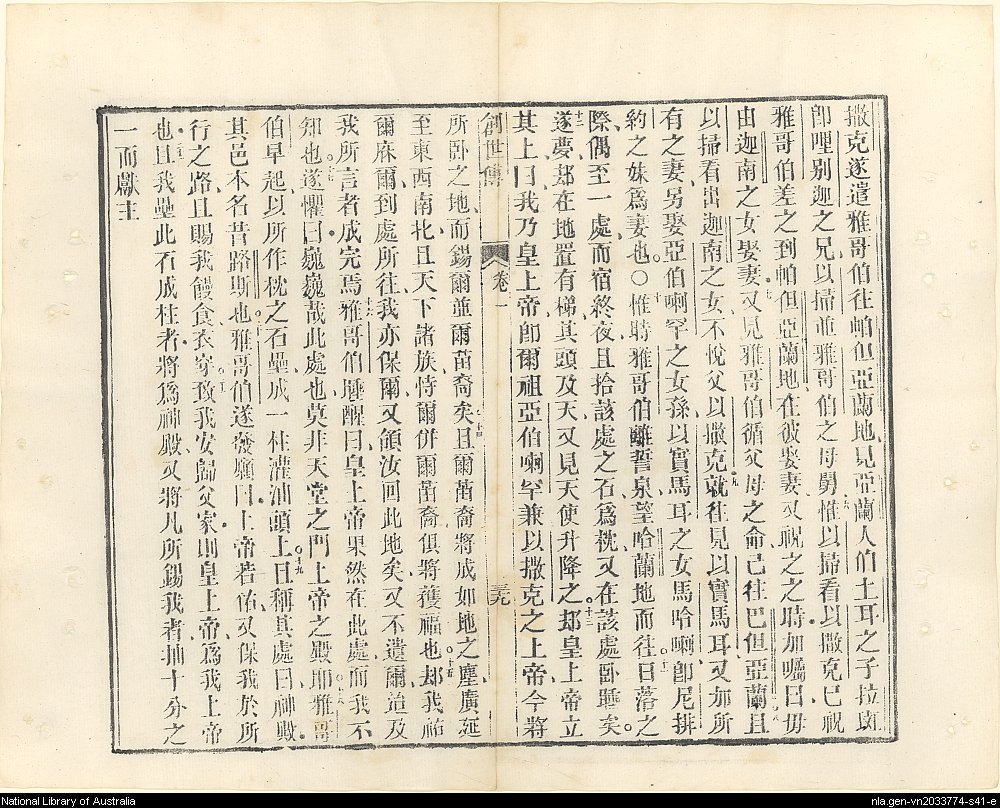 撒克遂遣雅哥伯往帕但亞蘭地見亞蘭人伯土耳之子拉班
卽哩別迦之兄以掃並雅哥伯之母舅惟以掃看以撒克已祝
雅哥伯差之到帕但亞蘭地在彼娶妻又祝之之時加囑曰毋
由迦南之女娶妻又見雅哥伯循父母之命己往巴但亞蘭且
以掃看出迦南之女不悅父以撒克就往見以實馬耳又加所
有之妻另娶亞伯喇罕之女孫以實馬耳之女馬哈喇卽尼排
約之妹爲妻也○惟時雅哥伯離誓泉望哈蘭地而往日落之
際偶至一處而宿終夜且拾該處之石爲枕又在該處卧睡矣
遂夢却在地置有梯其頭及天又見天使升降之却皇上帝立
其上曰我乃皇上帝卽爾祖亞伯喇罕兼以撒克之上帝今將
創世傳 卷一 三九
所卧之地而錫爾並爾苗裔矣且爾苗裔將成如地之塵廣延
至東西南北且天下諸族恃爾併爾苗裔俱將獲福也却我祐
爾庥爾到處所往我亦保爾又領汝回此地矣又不遺爾迨及
我所言者成完焉雅哥伯睡醒曰皇上帝果然在此處而我不
知也遂懼曰巍巍哉此處也莫非天堂之門上帝之殿卽雅哥
伯早起以所作枕之石壘成一柱灌油頭上且稱其處曰神殿
其邑本名昔路斯也雅哥伯遂發願曰上帝若祐又保我於所
行之路且賜我饅食衣穿致我安歸父家則皇上帝爲我上帝
也且我壘此石成柱者將爲神殿又將凡所錫我者抽十分之
一而獻主
National Library of Australia
nla.gen-vn2033774-s41-e